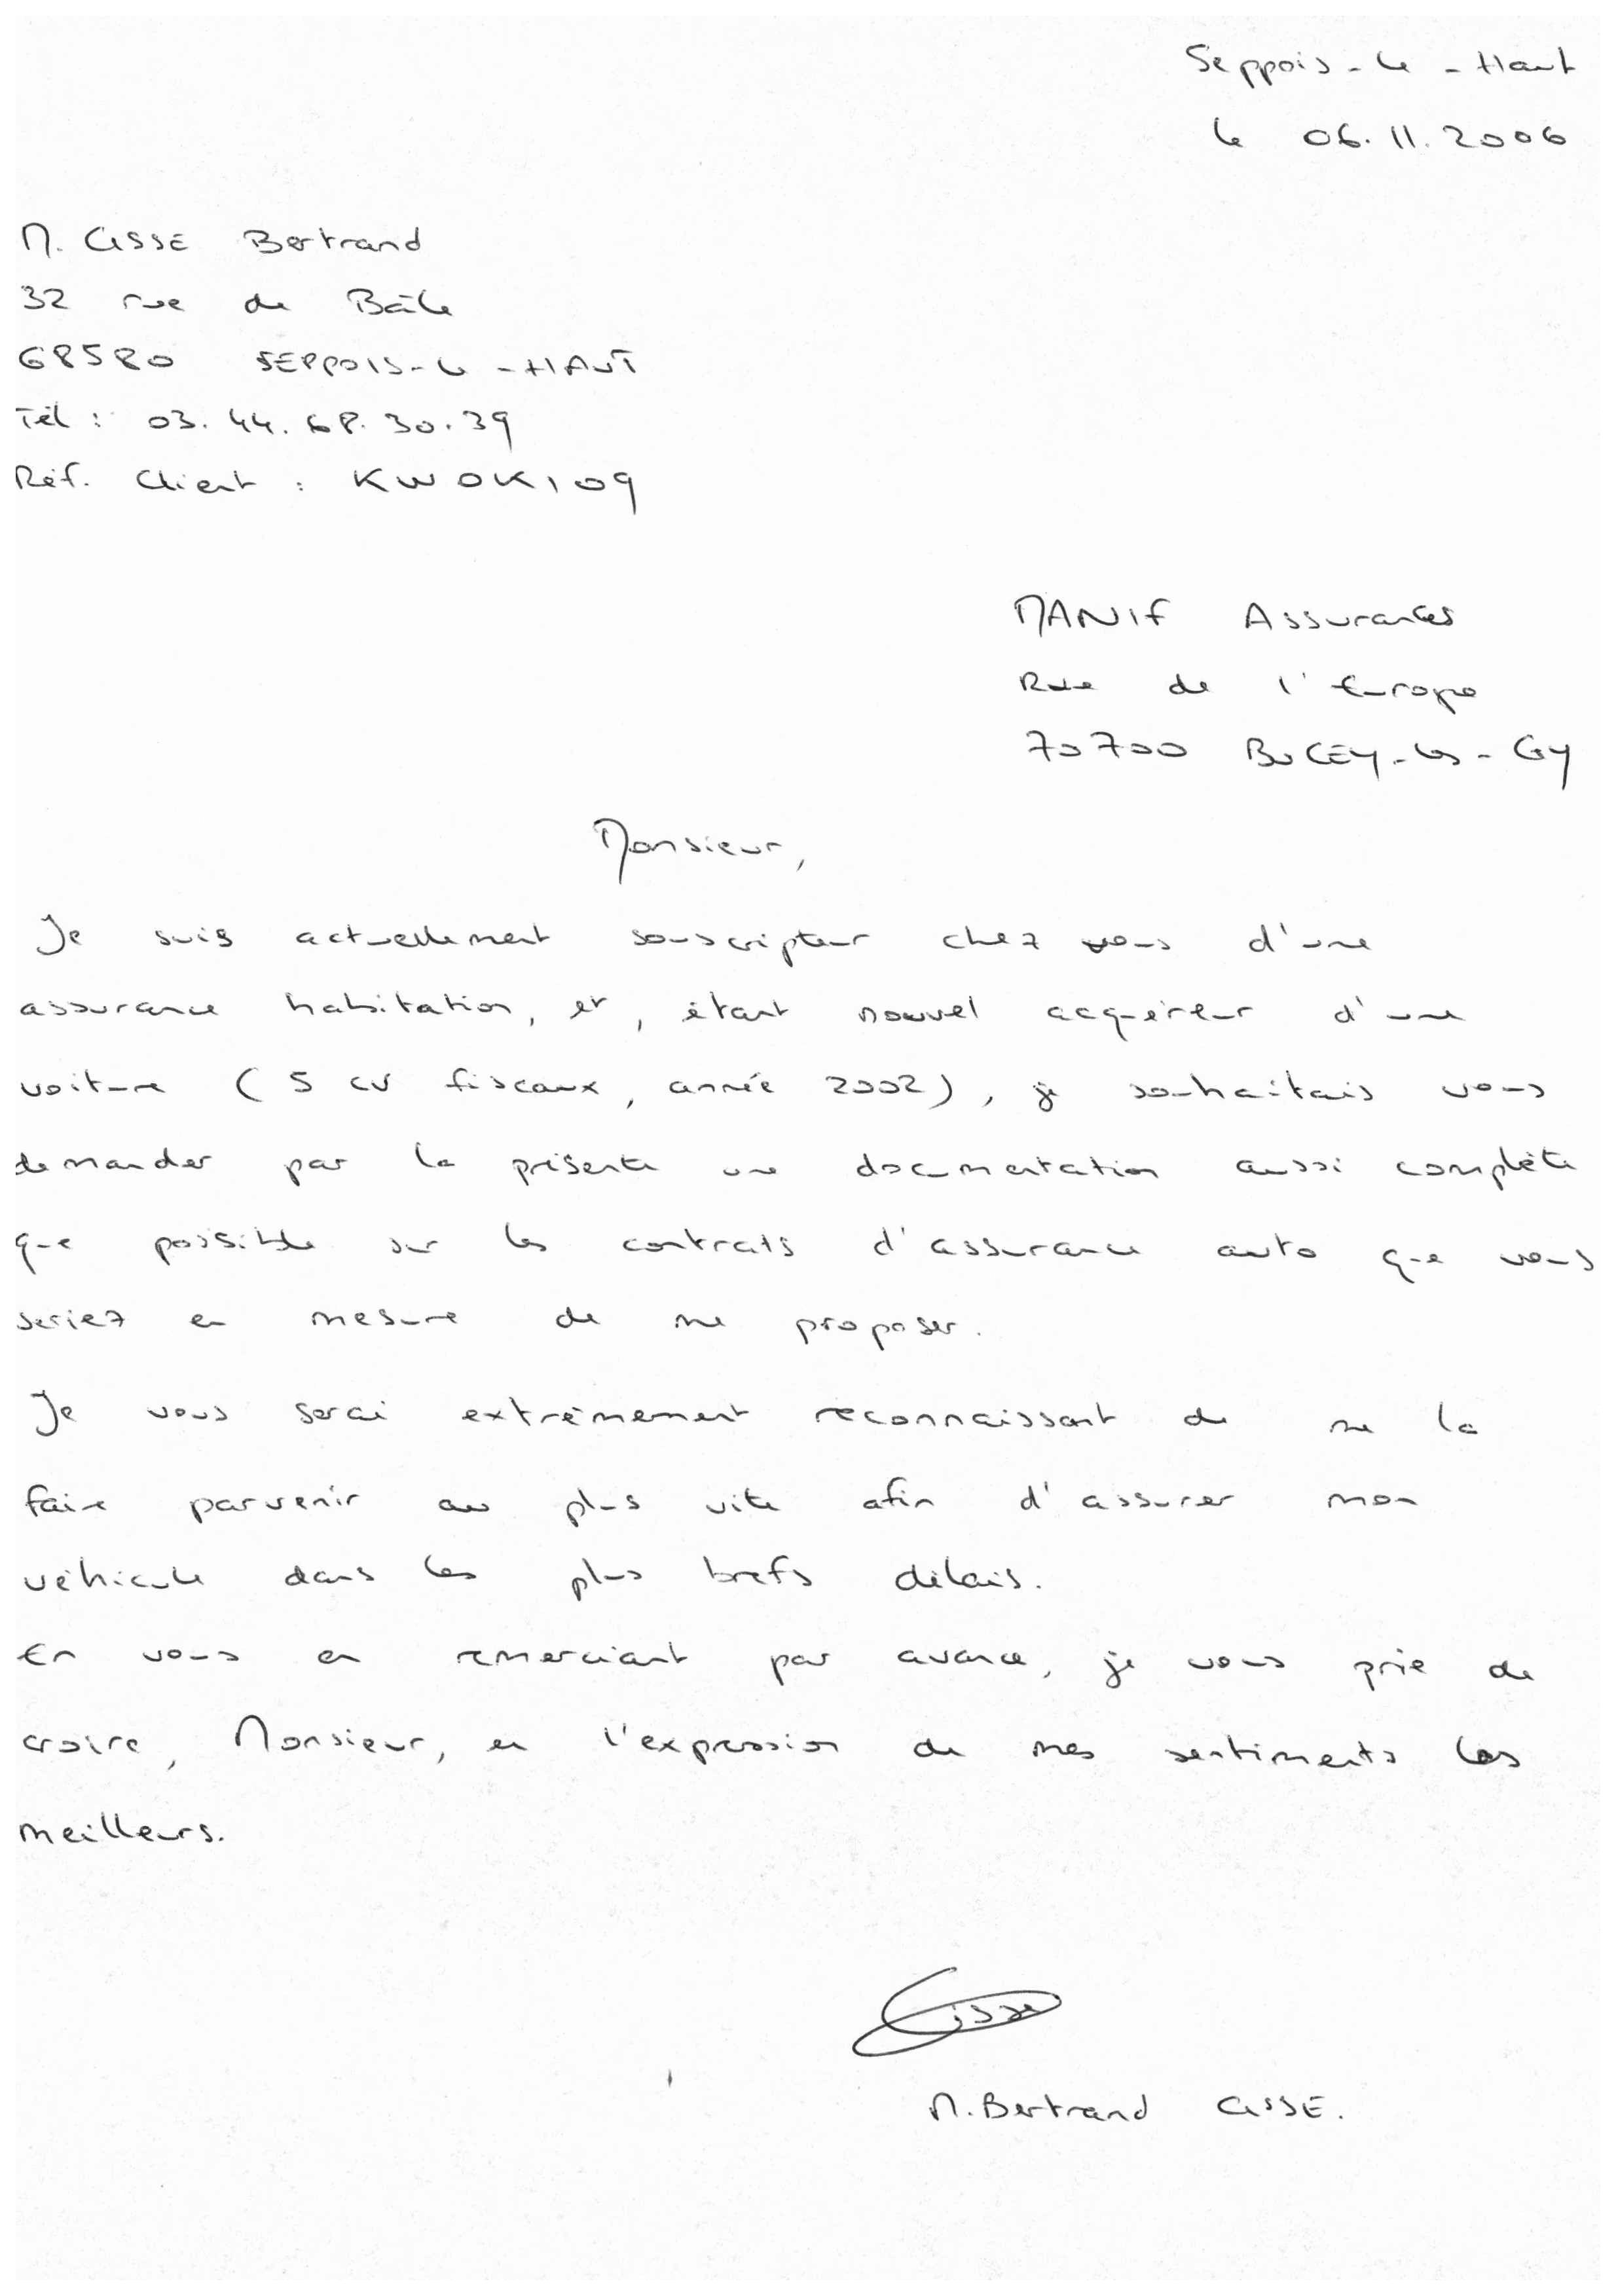 Seppois-le-Haut
le 06.11.2006
M. CISSE Bertrand
32 rue de Bâle
68580 SEPPOIS-le-HAUT
Tél : 03.44.68.30.39
Réf. Client : KWOK109
MANIF Assurances
Rue de l'Europe
70700 BUCEY-les-GY
Monsieur,
Je suis actuellement souscripteur chez vous d'une
assurance habitation, et, étant nouvel acquéreur d'une
voiture (5 cv fiscaux, année 2002), je souhaitais vous
demander par la présente une documentation aussi complète
que possible sur les contrats d'assurance auto que vous
seriez en mesure de me proposer.
Je vous serai extrêmement reconnaissant de me la
faire parvenir au plus vite afin d'assurer mon
véhicule dans les plus brefs délais.
En vous en remerciant par avance, je vous prie de
croire, Monsieur, en l'expression de mes sentiments les
meilleurs.
Cisse
M. Bertrand CISSE.